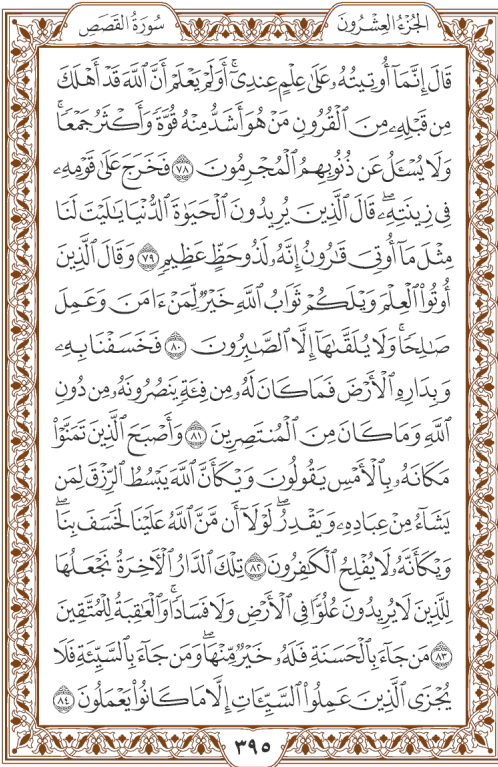 الجزء العشرون
سورة القصص
قَالَ إِنَّمَآ أُوتِيتُهُۥ عَلَىٰ عِلْمٍ عِندِىٓ ۚ أَوَلَمْ يَعْلَمْ أَنَّ ٱللَّهَ قَدْ أَهْلَكَ
مِن قَبْلِهِۦ مِنَ ٱلْقُرُونِ مَنْ هُوَ أَشَدُّ مِنْهُ قُوَّةً وَأَكْثَرُ جَمْعًا ۚ
وَلَا يُسْـَٔلُ عَن ذُنُوبِهِمُ ٱلْمُجْرِمُونَ ٧٨ فَخَرَجَ عَلَىٰ قَوْمِهِۦ
فِى زِينَتِهِۦ ۖ قَالَ ٱلَّذِينَ يُرِيدُونَ ٱلْحَيَوٰةَ ٱلدُّنْيَا يَٰلَيْتَ لَنَا
مِثْلَ مَآ أُوتِىَ قَٰرُونُ إِنَّهُۥ لَذُو حَظٍّ عَظِيمٍ ٧٩ وَقَالَ ٱلَّذِينَ
أُوتُوا۟ ٱلْعِلْمَ وَيْلَكُمْ ثَوَابُ ٱللَّهِ خَيْرٌ لِّمَنْ ءَامَنَ وَعَمِلَ
صَٰلِحًا ۚ وَلَا يُلَقَّىٰهَآ إِلَّا ٱلصَّٰبِرُونَ ٨٠ فَخَسَفْنَا بِهِۦ
وَبِدَارِهِ ٱلْأَرْضَ فَمَا كَانَ لَهُۥ مِن فِئَةٍ يَنصُرُونَهُۥ مِن دُونِ
ٱللَّهِ وَمَا كَانَ مِنَ ٱلْمُنتَصِرِينَ ٨١ وَأَصْبَحَ ٱلَّذِينَ تَمَنَّوْا۟
مَكَانَهُۥ بِٱلْأَمْسِ يَقُولُونَ وَيْكَأَنَّ ٱللَّهَ يَبْسُطُ ٱلرِّزْقَ لِمَن
يَشَآءُ مِنْ عِبَادِهِۦ وَيَقْدِرُ ۖ لَوْلَآ أَن مَّنَّ ٱللَّهُ عَلَيْنَا لَخَسَفَ بِنَا ۖ
وَيْكَأَنَّهُۥ لَا يُفْلِحُ ٱلْكَٰفِرُونَ ٨٢ تِلْكَ ٱلدَّارُ ٱلْءَاخِرَةُ نَجْعَلُهَا
لِلَّذِينَ لَا يُرِيدُونَ عُلُوًّا فِى ٱلْأَرْضِ وَلَا فَسَادًا ۚ وَٱلْعَٰقِبَةُ لِلْمُتَّقِينَ
٨٣ مَن جَآءَ بِٱلْحَسَنَةِ فَلَهُۥ خَيْرٌ مِّنْهَا ۖ وَمَن جَآءَ بِٱلسَّيِّئَةِ فَلَا
يُجْزَى ٱلَّذِينَ عَمِلُوا۟ ٱلسَّيِّـَٔاتِ إِلَّا مَا كَانُوا۟ يَعْمَلُونَ ٨٤
٣٩٥